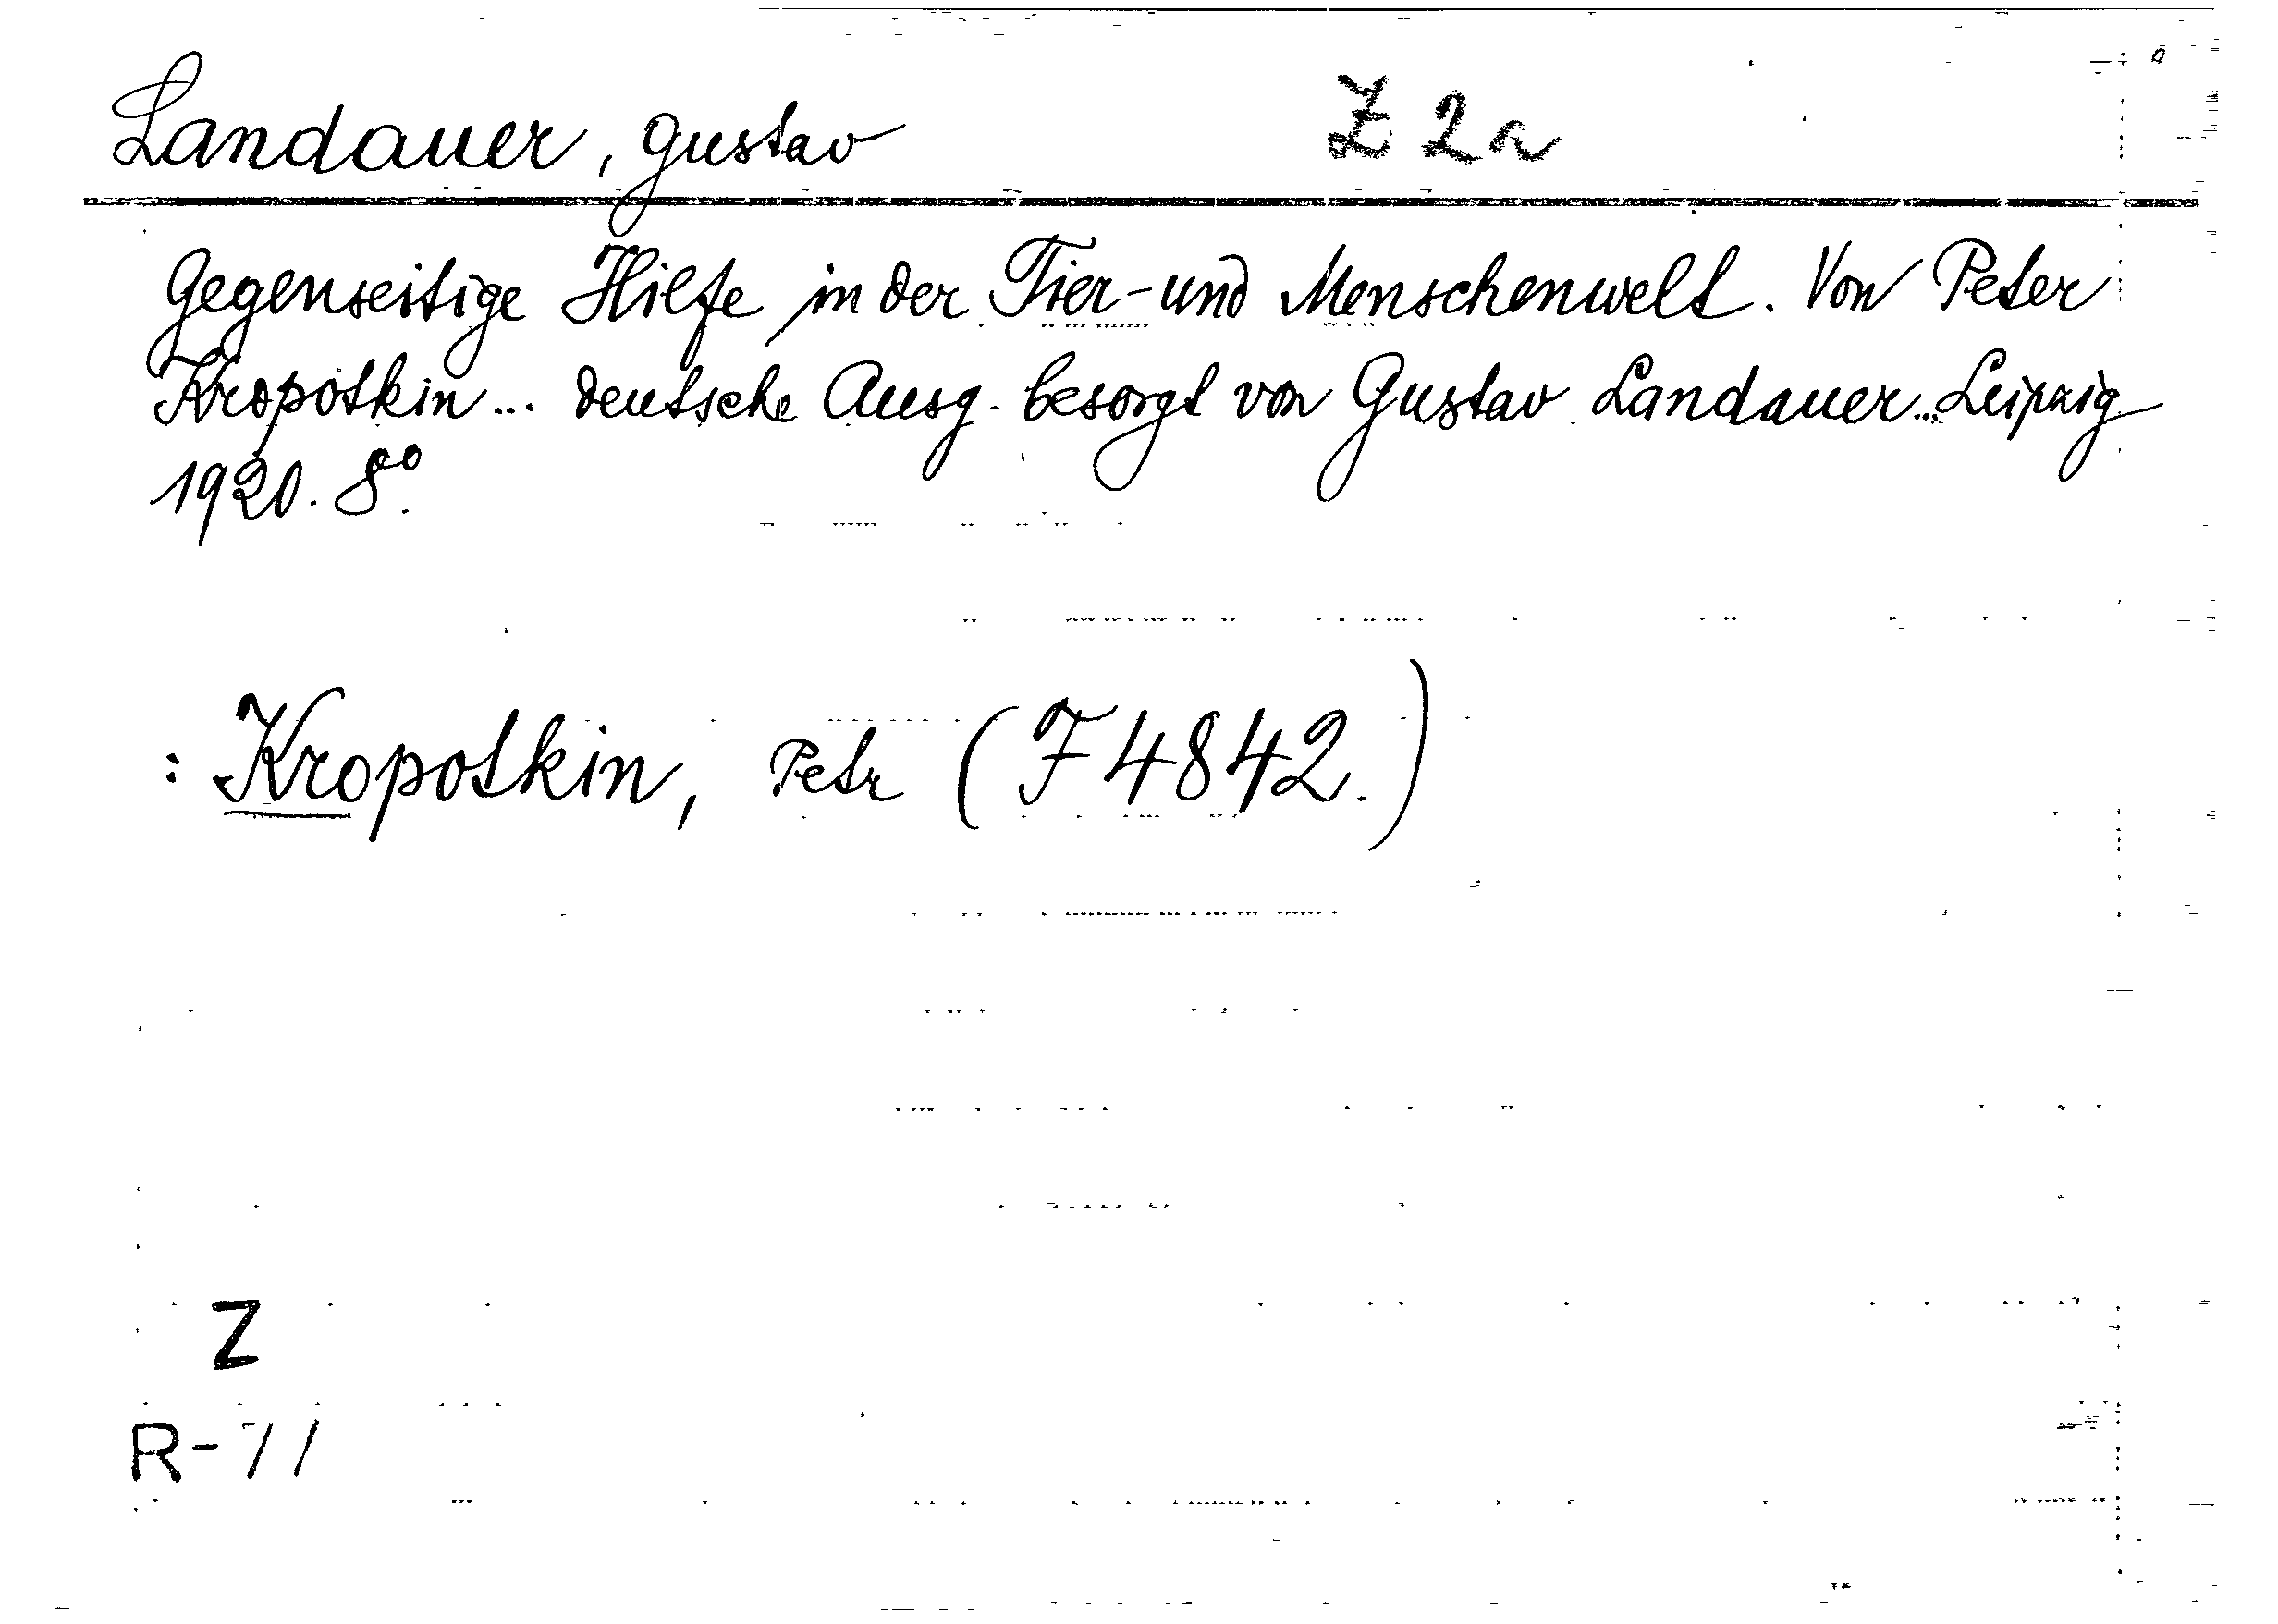 Landauer, Gustav Z 2a
Gegenseitige Hilfe in der Tier- und Menschenwelt. Von Peter
Kropotkin... deutsche Ausg. besorgt von Gustav Landauer... Leipzig
1920. 8°.
: Kropotkin, Petr (F 4842.)
Z
R-71